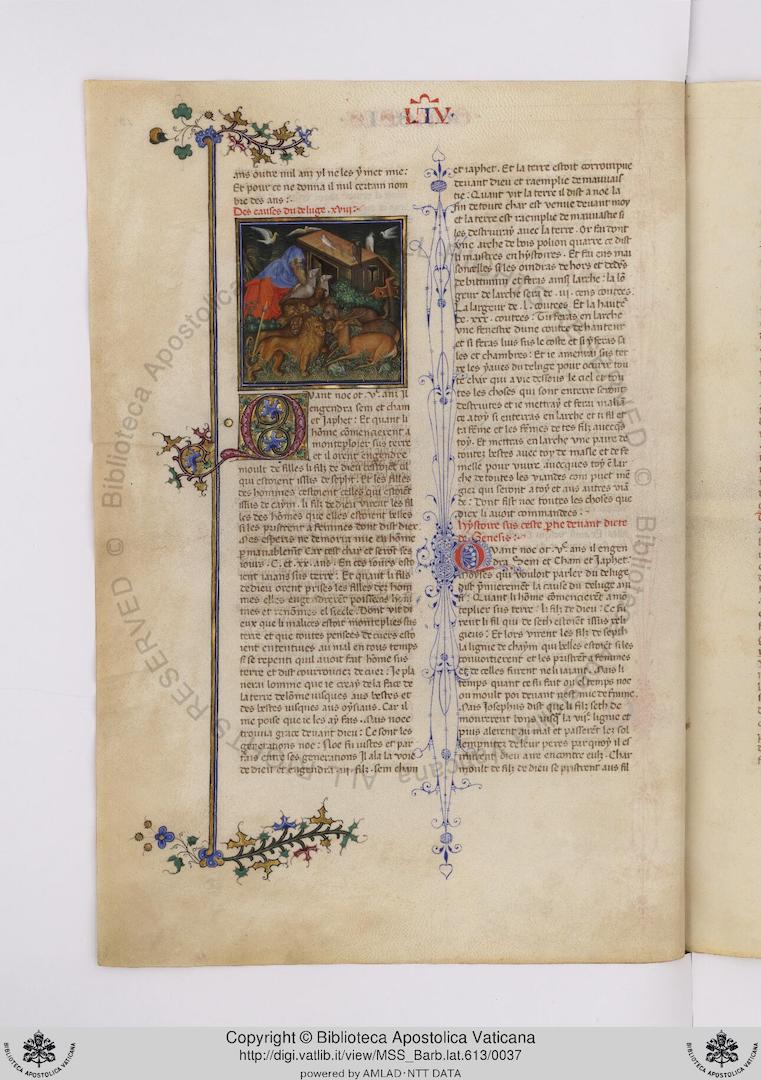 LIV
ans outre mil ans yl ne les y met mie:
Et pour ce ne donna il nul certain nom
bre des ans:
Des causes du deluge .xviii.
Quant noe ot .vc. ans il
engendra sem et cham
et Japhet: Et quant li
home comencierent a
monteploier sus terre
et il orent engendre
moult de filles li filz de dieu cestoient cil
qui estoient issus de seph: Et les filles
des hommes cestoient celles qui estoient
issus de caym. li filz de dieu virent les fil
les des homes que elles estoient belles
si les pristrent a femmes dont dist diex
Mes esperis ne demorra mie en home
permanablement Car cest char et seront ses
iours .C. et .xx. ans. En ces iours esto
ient iaians sus terre: Et quant li filz
de dieu orent prises les filles des hom
mes elles engendrerent poissens hom
mes et renomes el siecle. Dont vit di
eux que li malices estoit monteplies sus
terre et que toutes pensees de cuers esto
ient ententives au mal en tous temps
si se repenti quil avoit fait home sus
terre et dist courrouciez de cuer: Je pla
nerai lomme que ie creay de la face de
la terre delome iusques aus bestes et
des bestes iusques aus oysiaus. Car il
me poise que ie les ay fais. Mais noe
trouva grace devant dieu: Ce sont les
generations noe: Noe fu iustes et par
fais entre ses generations Il ala la voie
de dieu et engendra .iii. filz. sem cham
et iaphet. Et la terre estoit corrompue
devant dieu et raemplie de mauvais
tie: Quant vit la terre il dist a noe la
fin de toute char est venue devant moy
et la terre est raemplie de mauvaistie si
les destruiray avec la terre. Or fai dont
une arche de bois polion quarre ce dist
li maistres en hystoires. Et fai ens mai
soncelles si les oindras dehors et dedens
de bittumin et feras ainsi larche: la lon
geur de larche sera de .iii. cens coutees.
La largeur de .l. coutees. Et la haute
de .xxx. coutees: Tu feras en larche
une fenestre dune coute de hauteur
et si feras huis sus le coste et si y feras sa
les et chambres: Et ie amenrai sus ter
re les yaues du deluge pour ocirre tou
te char qui a vie dessous le ciel et tou
tes les choses qui sont en terre seront
destruites et ie mettray et ferai
ce a toy si enterras en larche et ti fil et
ta feme et les femes de tes filz avecques
toy. Et mettras en larche une paire de
toutes bestes avec toy de masle et de fe
melle pour vivre avecques toy en lar
che de toutes les viandes com puet men
giez qui seront a toy et aus autres vian
de: Dont fist noe toutes les choses que
diex li avoit commandees:
Hystoire sus ceste partie devant dicte
de Genesis:
Quant noe ot .vc. ans il engen
dra Sem et Cham et Japhet.
Moyses qui vouloit parler du deluge
dist premierement la cause du deluge ain
si: Quant li home comencierent a mon
teplier sus terre: li filz de dieu: Ce fu
rent li fil qui de seth estoient issus reli
gieus: Et lors virent les filz de seph
la ligne de chaym qui belles estoient si les
convoitierent et les pristrent a femmes
et de celles furent ne li iaiant. Mais li
temps quant ce fu fait ou el temps noe
ou moult poi devant nest mie determine.
Mais Josephus dist que li filz seth de
mourerent bons iusques a la viie. lignie et
puis alerent au mal et passerent les sol
lempnitez de leur peres par quoy il es
murent dieu a ire encontre eulz. Char
moult de filz de dieu se pristrent aus fil
Copyright © Biblioteca Apostolica Vaticana
http://digi.vatlib.it/view/MSS_Barb.lat.613/0037
powered by AMLAD·NTT DATA